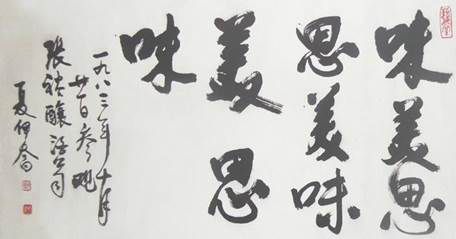 味美思
思美味
美思
味
一九八三年十月
廿日参观
张裕酿酒公司
夏伊乔